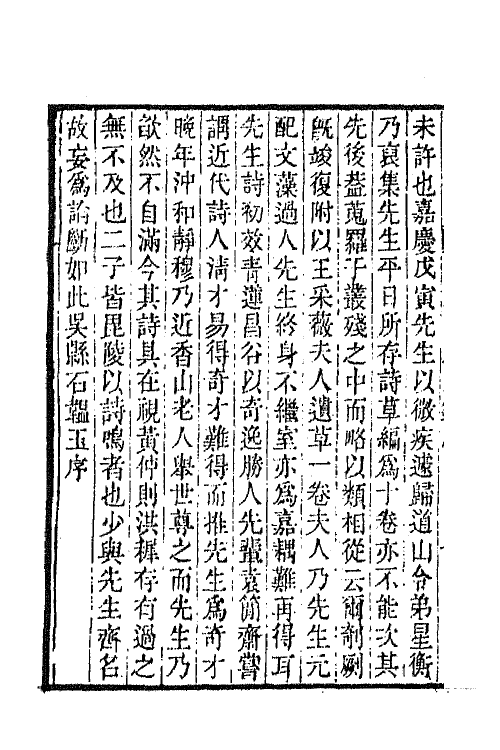 未許也嘉慶戊寅先生以微疾遽歸道山令弟星衡
乃裒集先生平日所存詩草編爲十卷亦不能次其
先後葢蒐羅于叢殘之中而略以類相從云爾剞劂
旣竣復附以王采薇夫人遺草一卷夫人乃先生元
配文藻過人先生終身不繼室亦爲嘉耦難再得耳
先生詩初效靑蓮昌谷以奇逸勝人先輩袁簡齋嘗
謂近代詩人淸才易得奇才難得而推先生爲奇才
晚年沖和靜穆乃近香山老人舉世尊之而先生乃
欿然不自滿今其詩具在視黃仲則洪穉存有過之
無不及也二子皆毘陵以詩鳴者也少與先生齊名
故妄爲論斷如此吳縣石韞玉序